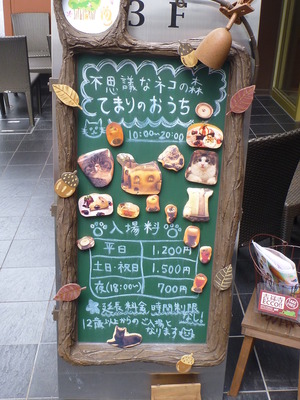 3F
不思議なネコの森
てまりのおうち
10:00~20:00
入場料
平日 1,200円
土日・祝日 1,500円
夜(18:00~) 700円
延長料金 時間制限 なし
12歳以上からのご入場となります